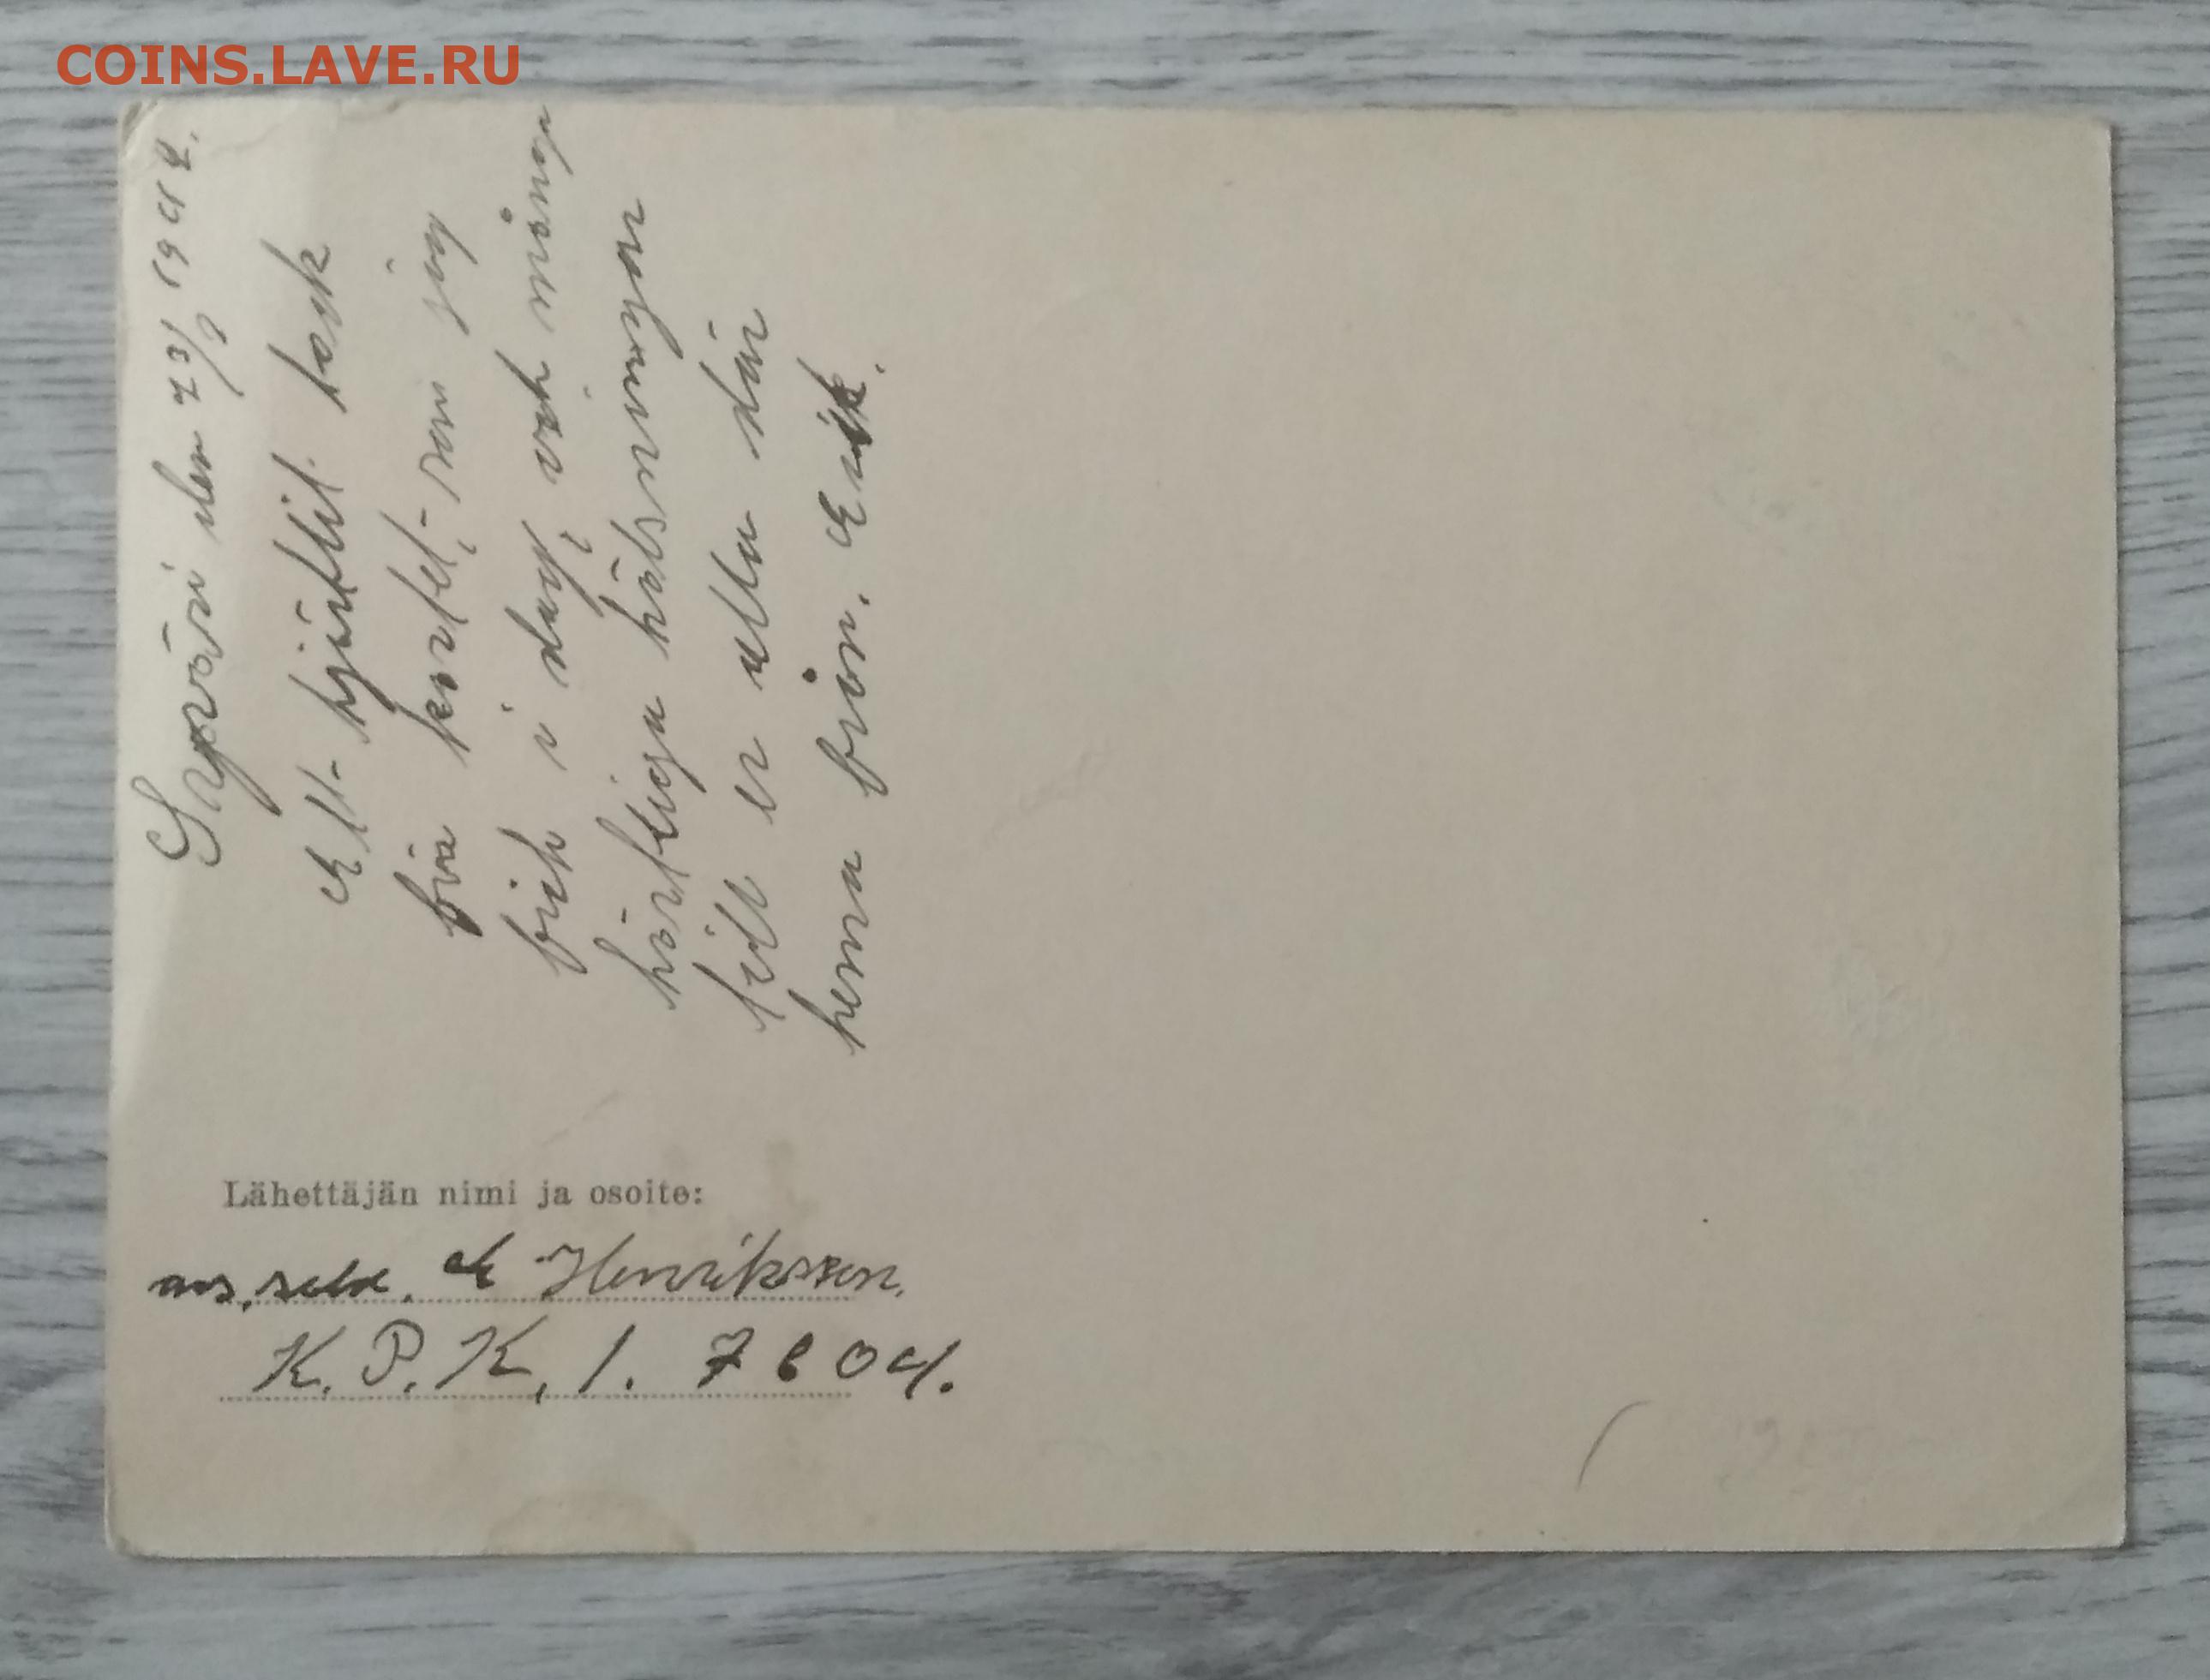 COINS.LAVE.RU
Syväri den 23/9 1942.
Ett hjärtlit tack
frå kortet, som jag
fick i dag, och många
härtliga hälsningar
till er alla där
hema från. Erik.
Lähettäjän nimi ja osoite:
E Henriksson,
K. P. K, 1. 7604.